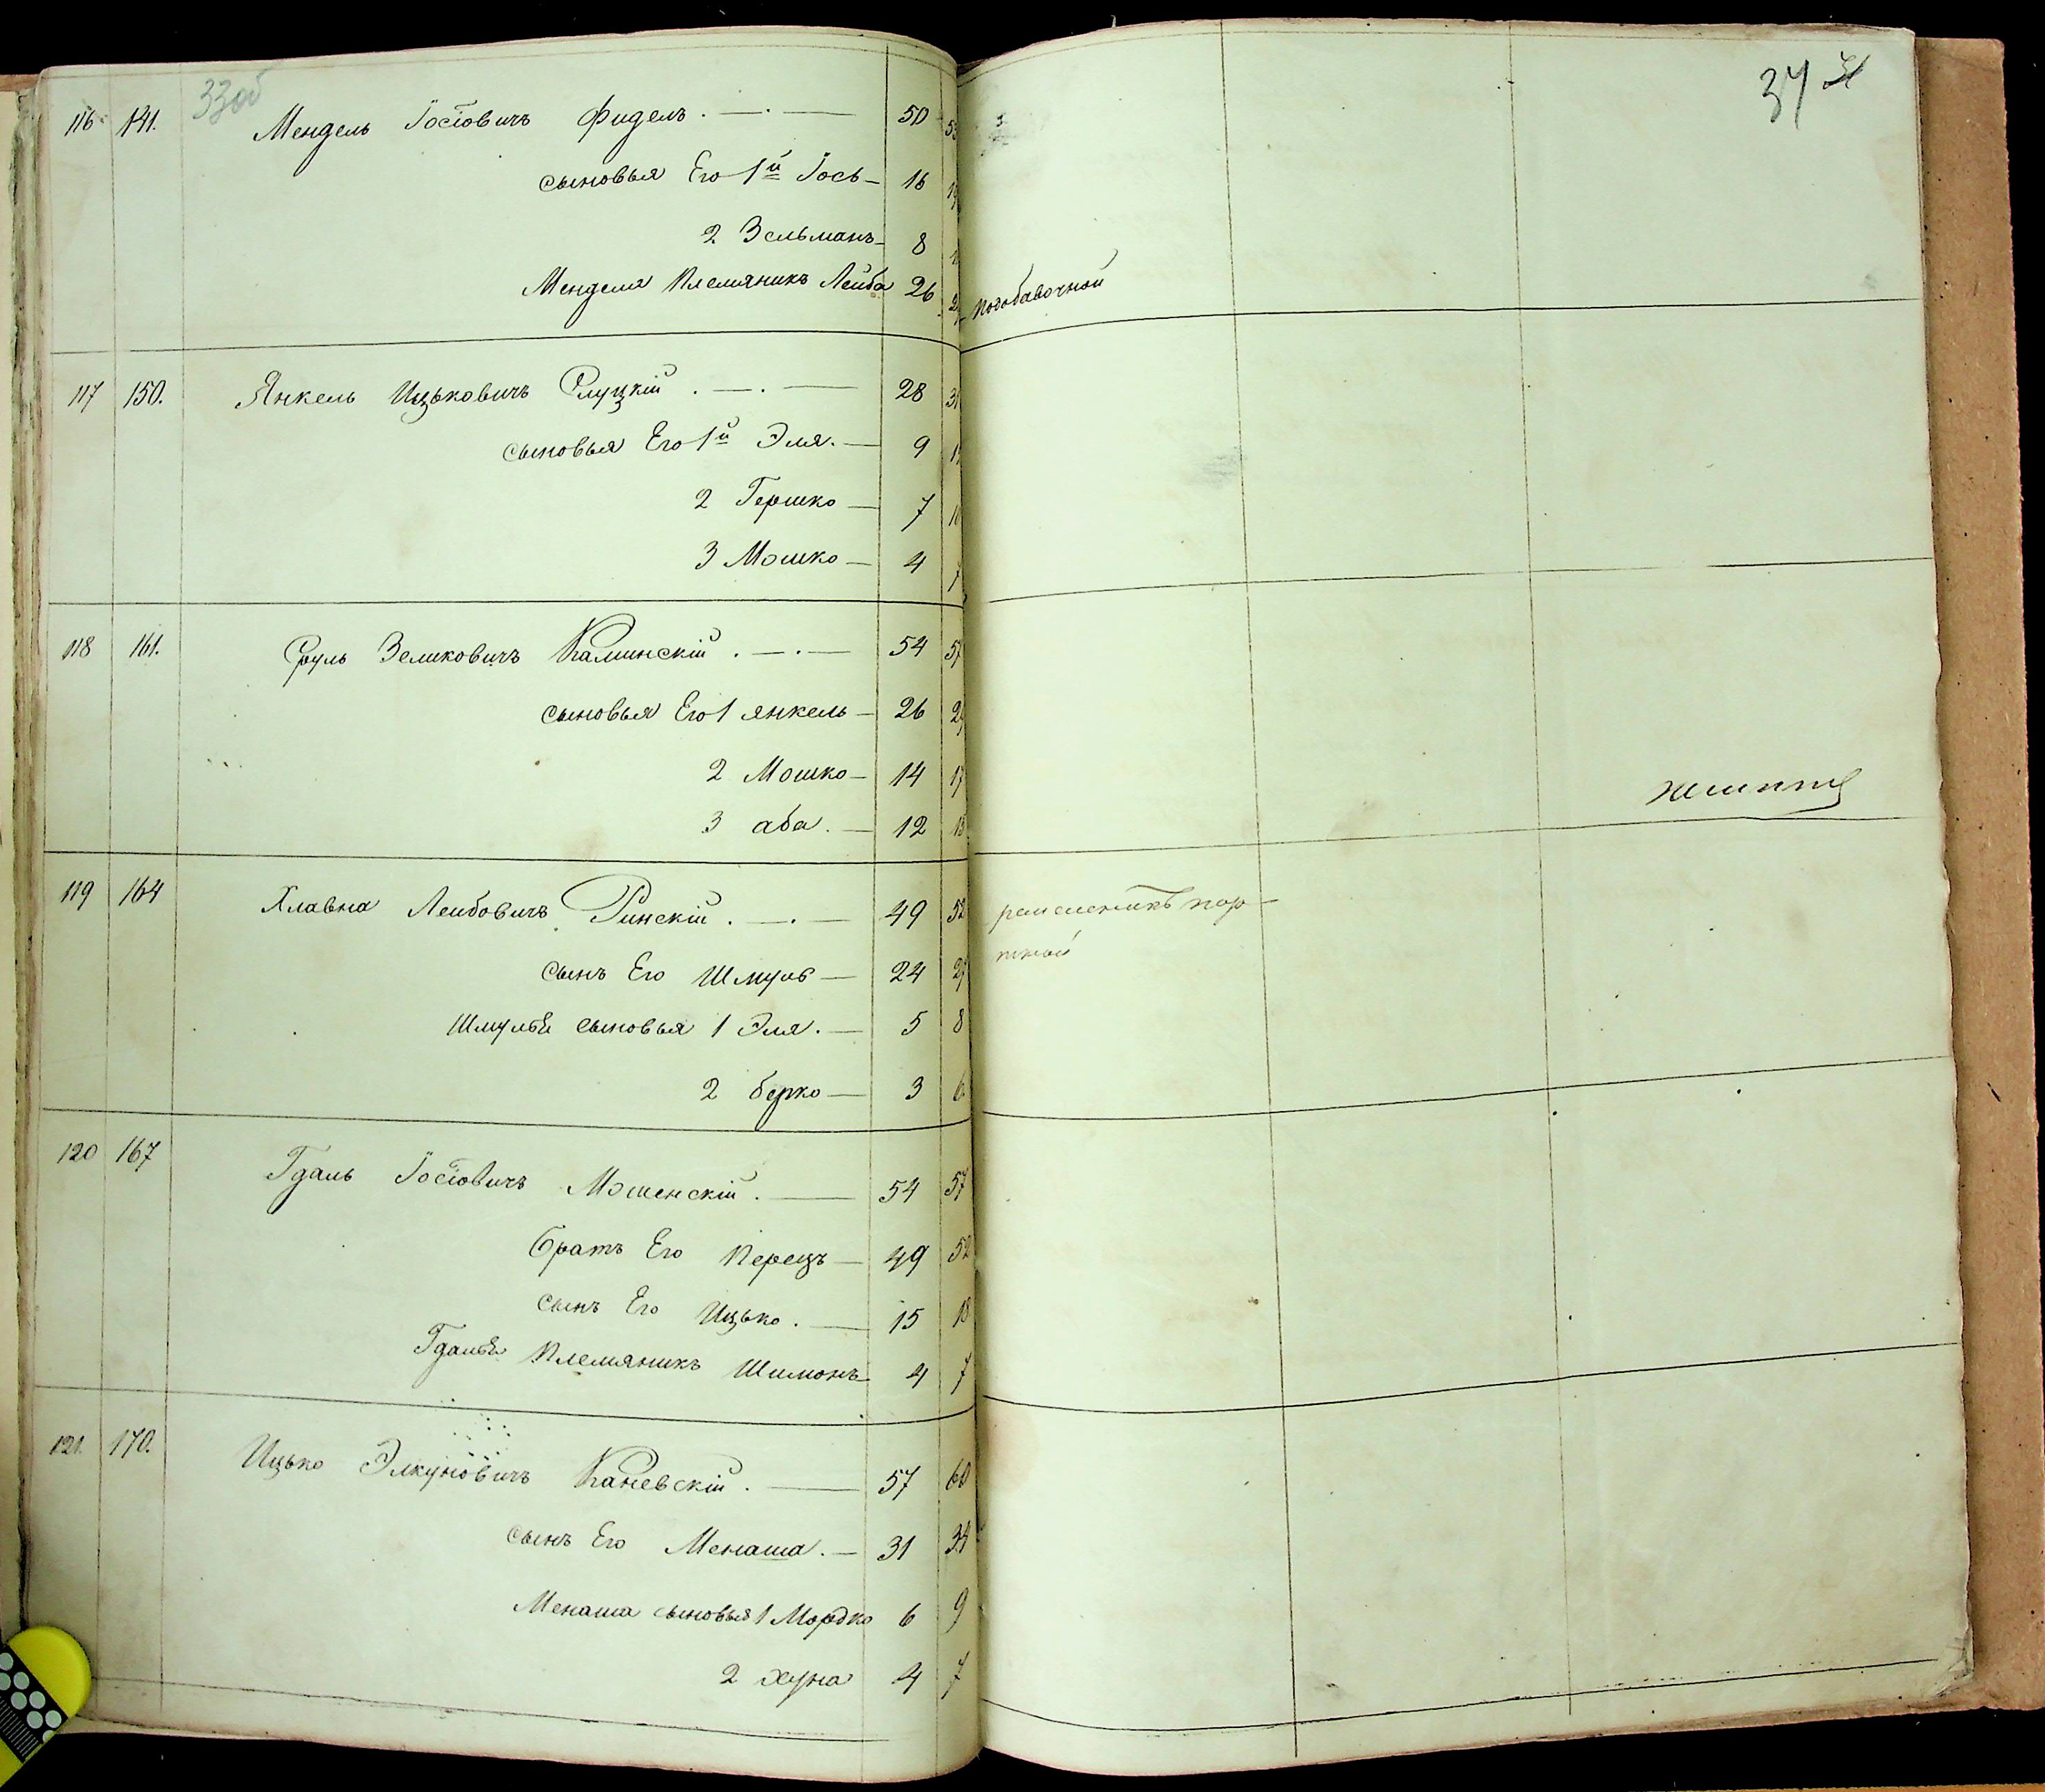 33об
116 141. Мендель Іосіовичъ Фидель. 50 53
сыновья Его 1й Іось 16 19
2 Зельманъ 8
Менделя Племяникъ Лейба 26 29 подобавочной
117 150. Янкель Ицьковичъ Слуцкій. 28 31
сыновья Его 1й Эля. 9
2 Гершко 7 10
3 Мошко 4 7
118 161. Сруль Зеликовичъ Каминскій. 54 57
сыновья Его 1 Янкель 26 29
2 Мошко 14 17
3 аба. 12 15
119 164 Хлавна Лейбовичъ Ринскій. 49 52
сынъ Его Шмуль 24 27
Шмуля сыновья 1 Эля. 5 8
2 берко 3 6
120 167 Гдаль Іосіовичъ Мошенскій. 54 57
братъ Его Перецъ 49 52
сынъ Его Ицько. 15 18
Гдаля Племяникъ Шимонъ 4 7
121. 170. Ицько Элкуновичъ Каневскій. 57 60
сынъ Его Менаша. 31 34
Менаша сыновья 1 Мордко 6 9
2 хуна 4 7
34
ремесленикъ пор-
тной